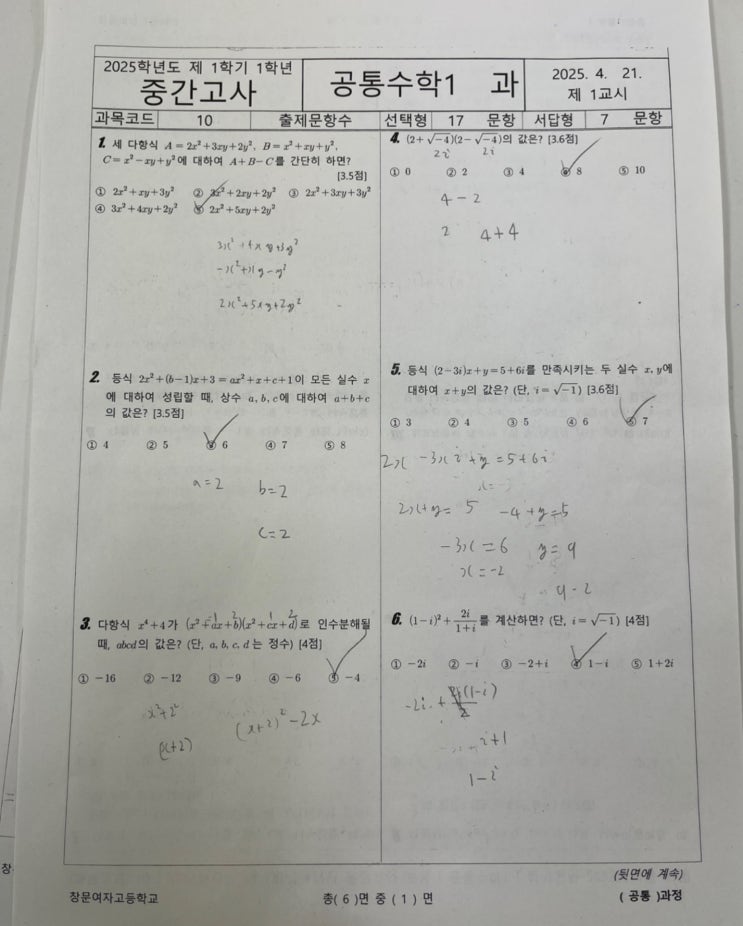 2025학년도 제 1학기 1학년
중간고사
공통수학1 과
2025. 4. 21.
제 1교시
과목코드 10 출제문항수 선택형 17 문항 서답형 7 문항
1. 세 다항식 A = 2x²+3xy+2y², B = x²+xy+y²,
C = x²−xy+y²에 대하여 A+B−C를 간단히 하면?
[3.5점]
① 2x²+xy+3y² ② 2x²+2xy+2y² ③ 2x²+3xy+3y²
④ 3x²+4xy+2y² ⑤ 2x²+5xy+2y²
3x²+4xy+3y²
−x²+xy−y²
2x²+5xy+2y²
2. 등식 2x²+(b−1)x+3 = ax²+x+c+1이 모든 실수 x
에 대하여 성립할 때, 상수 a, b, c에 대하여 a+b+c
의 값은? [3.5점]
① 4 ② 5 ③ 6 ④ 7 ⑤ 8
a=2 b=2
c=2
3. 다항식 x⁴+4가 (x²+ax+b)(x²+cx+d)로 인수분해될
때, abcd의 값은? (단, a, b, c, d는 정수) [4점]
① −16 ② −12 ③ −9 ④ −6 ⑤ −4
x²+2²
(x+2)
(x+2)²−2x
4. (2+√−4)(2−√−4)의 값은? [3.6점]
2i 2i
① 0 ② 2 ③ 4 ④ 8 ⑤ 10
4−2
2 4+4
5. 등식 (2−3i)x+y = 5+6i를 만족시키는 두 실수 x, y에
대하여 x+y의 값은? (단, i = √−1) [3.6점]
① 3 ② 4 ③ 5 ④ 6 ⑤ 7
2x −3xi+y=5+6i
2x+y= 5 −4+y=5
−3x=6 y=9
x=−2
9−2
6. (1−i)²+2i/(1+i)를 계산하면? (단, i = √−1) [4점]
① −2i ② −i ③ −2+i ④ 1−i ⑤ 1+2i
−2i + 2i(1−i)/2
i+1
1−i
(뒷면에 계속)
창문여자고등학교 총( 6 )면 중 ( 1 ) 면 ( 공통 )과정